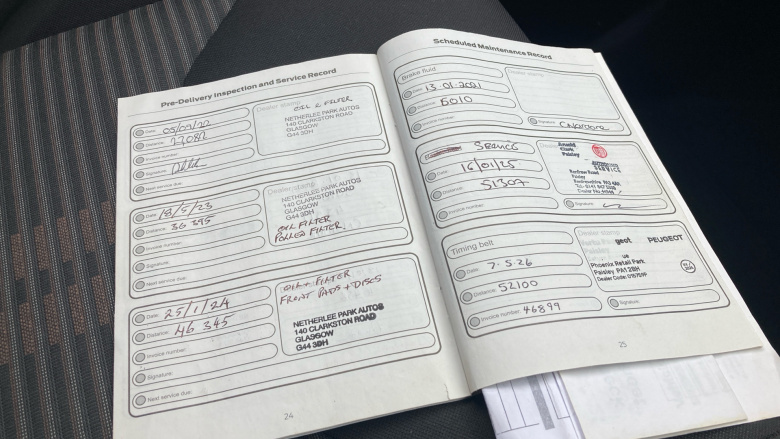 Pre-Delivery Inspection and Service Record
Date:
Distance:
Invoice number:
Signature:
Next service due:
Dealer stamp
OIL & FILTER
NETHERLEE PARK AUTOS
140 CLARKSTON ROAD
GLASGOW
G44 3DH
Date: 18/5/23
Distance: 36 395
Invoice number:
Signature:
Next service due:
Dealer stamp
NETHERLEE PARK AUTOS
140 CLARKSTON ROAD
GLASGOW
G44 3DH
OIL FILTER
POLLEN FILTER.
Date: 25/1/24
Distance: 46 345
Invoice number:
Signature:
Next service due:
OIL + FILTER
FRONT PADS + DISCS
NETHERLEE PARK AUTOS
140 CLARKSTON ROAD
GLASGOW
G44 3DH
24
Scheduled Maintenance Record
Brake fluid
Date: 13.01.2021
Distance: 6010
Invoice number:
Dealer stamp
Signature:
SERVICE
Date: 16/01/25
Distance: 51307
Invoice number:
Arnold
Clark
Paisley
SERVICE
Renfrew Road
Paisley
Signature:
Timing belt
Date: 7-5-26
Distance: 52100
Invoice number: 46899
Dealer stamp
geot PEUGEOT
Phoenix Retail Park
Paisley PA1 2BH
Signature:
25